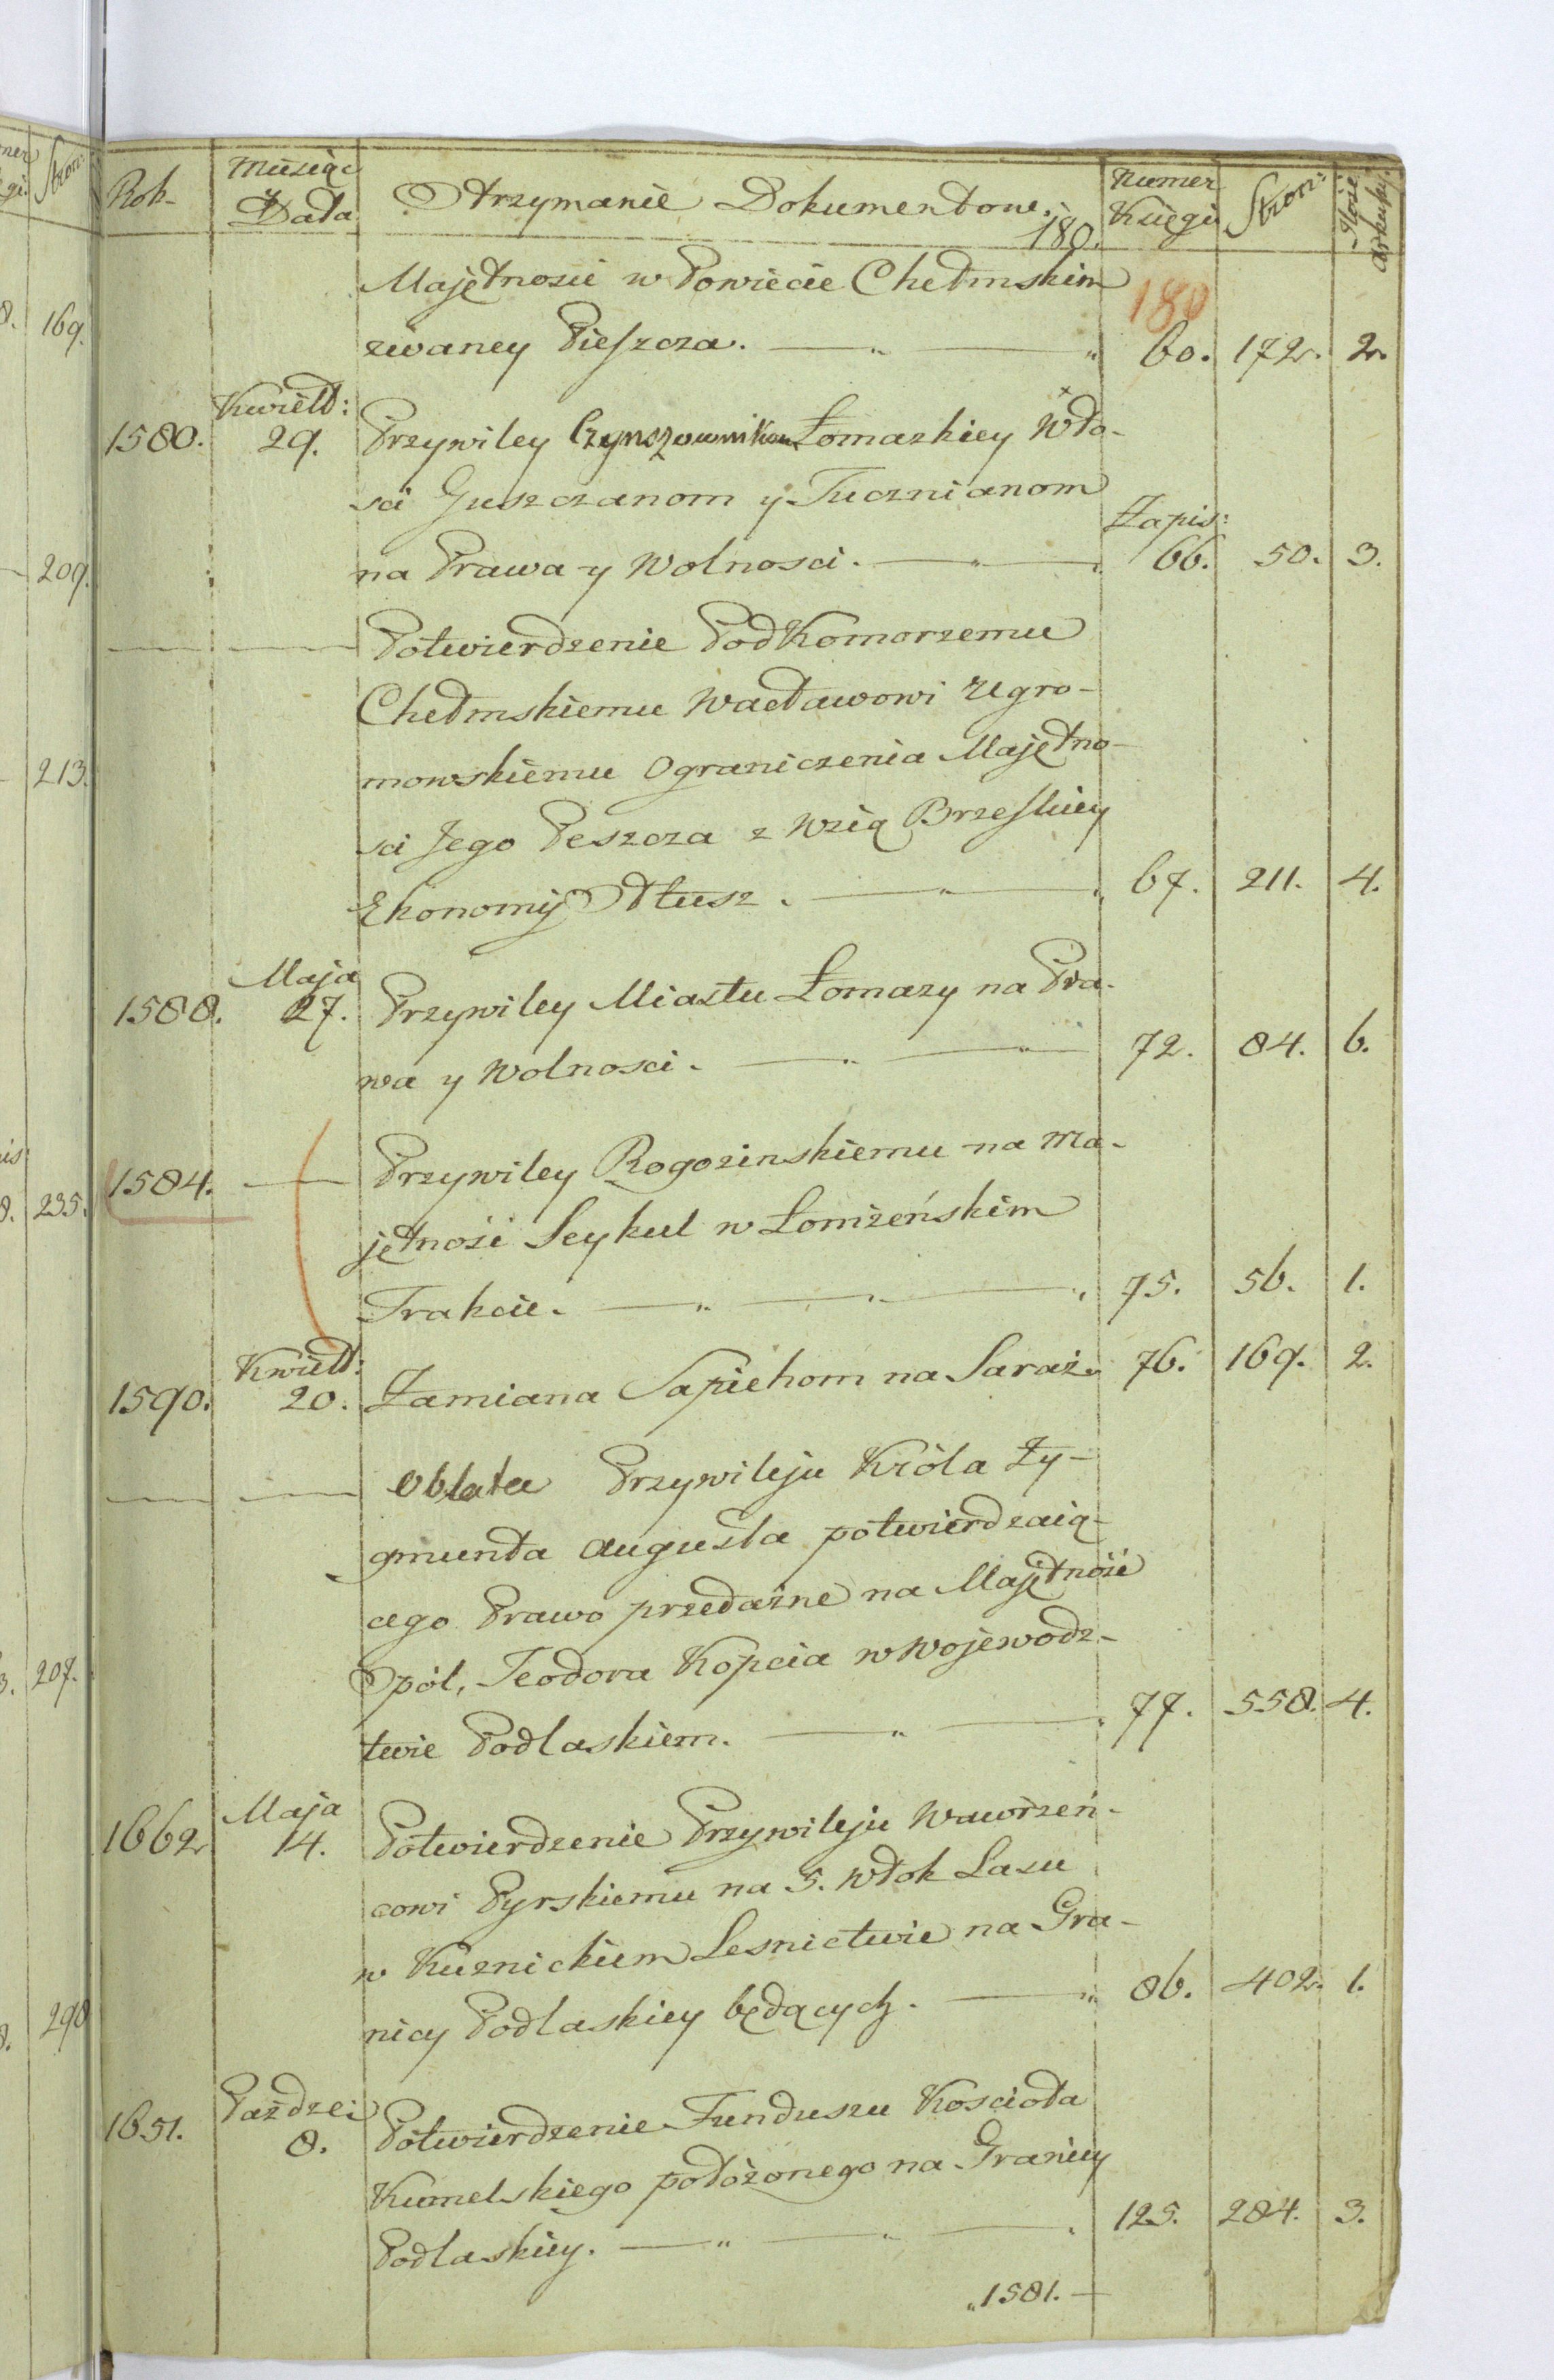 Rok. Miesiąc y Data Otrzymanie Dokumentow. Numer Księgi Stron: Ilość arkuszy.
180.
180
Majętnosci w Powiecie Chełmskim
zwaney Pieszcza. 60. 172. 2.
Kwiett:
1580. 29. Przywiley Czynszownikom Łomazkiey Wło-
sci Guszczanom y Tucznianom
Zapis:
na Prawa y Wolnosci. 66. 50. 3.
Potwierdzenie PodKomorzemu
Chełmskiemu Wacławowi Ugro-
mowskiemu Ograniczenia Majętno-
sci Jego Peszcza z Wsią Brzeskiey
Ekonomij Ottusz. 67. 211. 4.
Maja
1588. 27. Przywiley Miastu Łomazy na Pra-
wa y Wolnosci. 72. 84. 6.
1584. Przywiley Rogozinskiemu na Ma-
jętnośi Seykul w Łomżeńskim
Trakcie. 75. 56. 1.
Kwiett:
1590. 20. Zamiana Sapiehom na Saraż. 76. 169. 2.
Oblata Przywileju Króla Zy-
gmunta Augusta potwierdzaią-
cego Prawo przedażne na Majętność
Opól, Teodora Kopcia w Wojewodz-
twie Podlaskiem. 77. 558. 4.
Maja
1662 14. Potwierdzenie Przywileju Wawrzeń-
cowi Pyrskiemu na 5. Włok Lasu
w Kuznickiem Lesnictwie na Gra-
nicy Podlaskiey będących. 86. 402. 1.
Paździe:
1651. 8. Potwierdzenie Funduszu Kościoła
Kumelskiego położonego na Granicy
Podlaskiey. 125. 284. 3.
1581.
169.
209.
213.
235.
207.
298